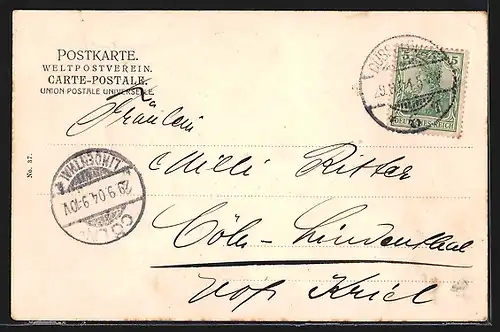 POSTKARTE.
WELTPOSTVEREIN.
CARTE-POSTALE.
UNION POSTALE UNIVERSELLE.
5
DEUTSCHES REICH
Fräulein
Milli Ritter
Cöln-Lindenthal
Hof Kriel
No. 37.
CÖLN
29.9.04.9-10V
LINDENTHAL